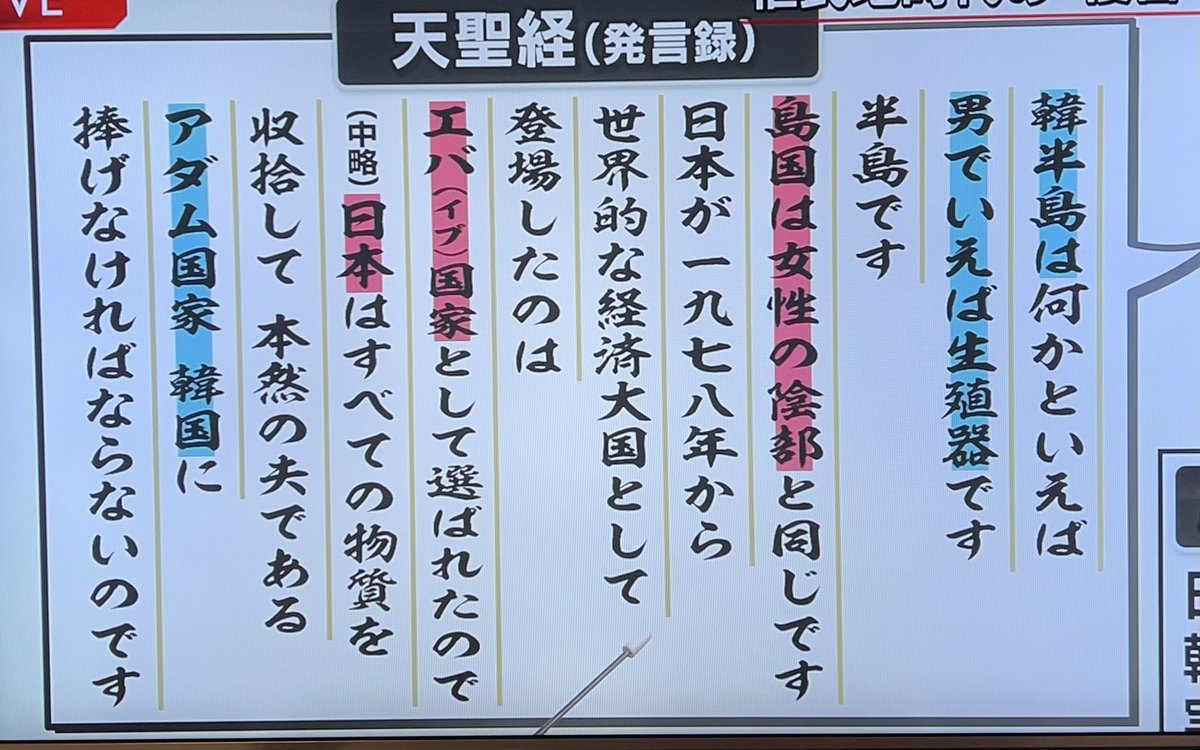 天聖経(発言録)
韓半島は何かといえば
男でいえば生殖器です
半島です
島国は女性の陰部と同じです
日本が一九七八年から
世界的な経済大国として
登場したのは
エバ(イブ)国家として選ばれたので
(中略)日本はすべての物質を
収拾して 本然の夫である
アダム国家 韓国に
捧げなければならないのです